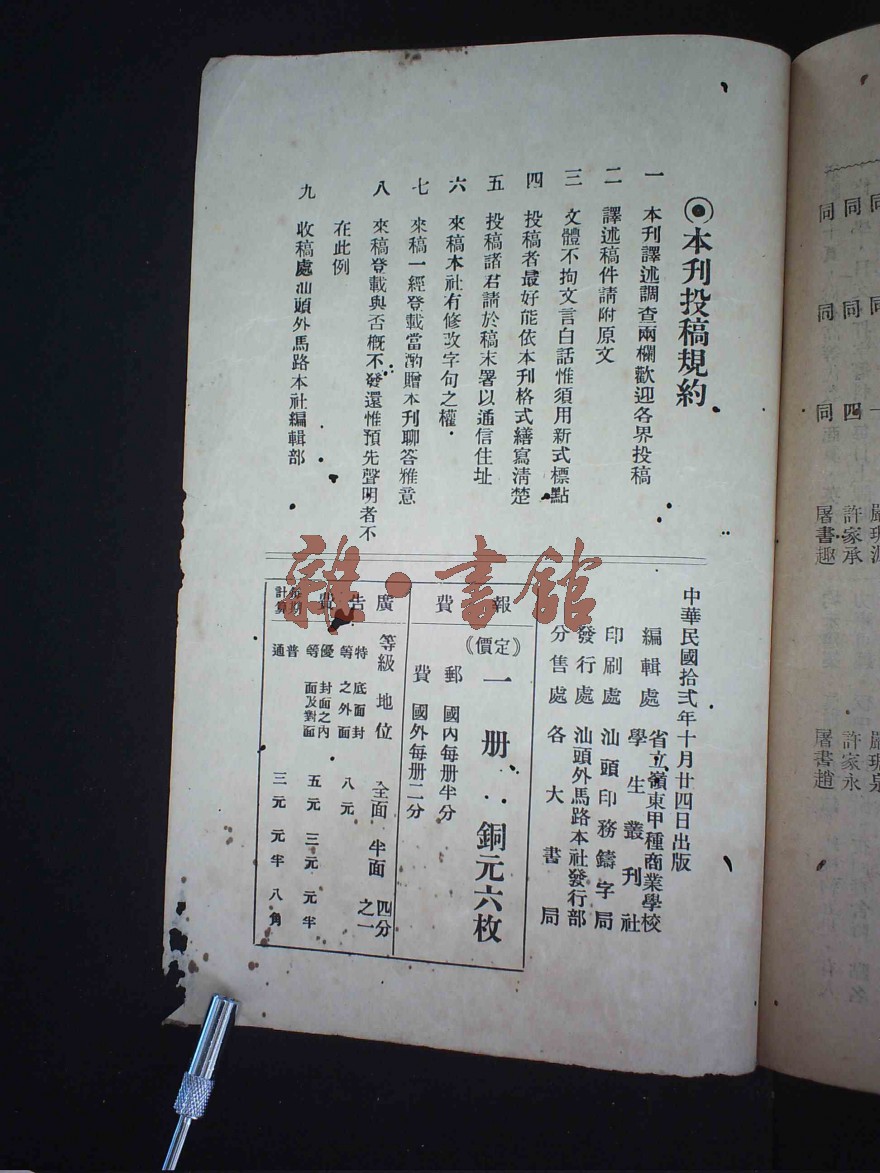 ◉本刋投稿規約
一 本刋譯述調查兩欄歡迎各界投稿
二 譯述稿件請附原文
三 文體不拘文言白話惟須用新式標點
四 投稿者最好能依本刋格式繕寫清楚
五 投稿諸君請於稿末署以通信住址
六 來稿本社有修改字句之權
七 來稿一經登載當酌贈本刋聊答雅意
八 來稿登載與否概不發還惟預先聲明者不
在此例
九 收稿處汕頭外馬路本社編輯部
中華民國拾弍年十月廿四日出版
編輯處 省立嶺東甲種商業學校
學生叢刋社
印刷處 汕頭印務鑄字局
發行處 汕頭外馬路本社發行部
分售處 各大書局
報費
《定價》 一册‥銅元六枚
郵費 國內每册半分
國外每册二分
廣告費
每期計算
等級 地位 全面 半面 四分之一
特等 底面封之外面 八元
優等 封面之內面及對面 五元 三元 元半
普通 三元 元半 八角
雜·書館
同 同 一 嚴琪源 嚴琪泉
同 同 四 許家承 許家永
同 同 同 屠書趣 屠書趙